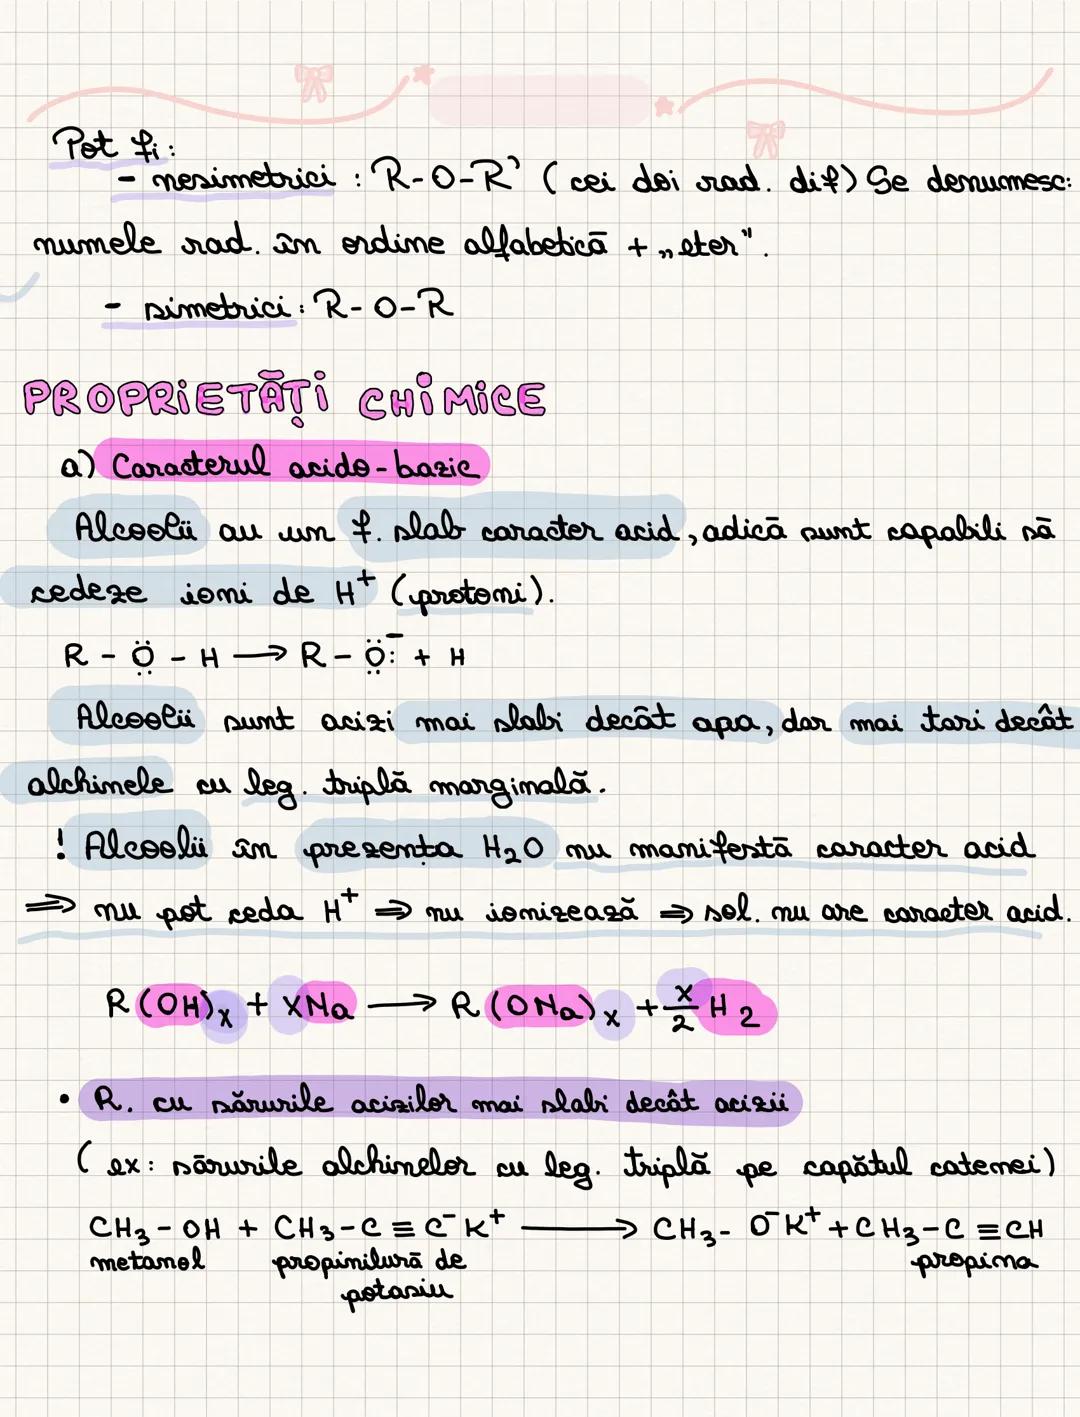 Pot fi:
- nesimetrici : R-O-R' (cei doi rad. dif) Se denumesc:
numele rad. în ordine alfabetică + „eter".
- simetrici : R-O-R
PROPRIETĂȚI CHIMICE
a) Caracterul acido-bazic
Alcoolii au un f. slab caracter acid, adică sunt capabili să
cedeze ioni de H⁺ (protoni).
R - Ö - H ⟶ R - Ö:⁻ + H
Alcoolii sunt acizi mai slabi decât apa, dar mai tari decât
alchinele cu leg. triplă marginală.
! Alcoolii în prezența H₂O nu manifestă caracter acid
⇒ nu pot ceda H⁺ ⇒ nu ionizează ⇒ sol. nu are caracter acid.
R(OH)ₓ + xNa ⟶ R(ONa)ₓ + x/2 H₂
• R. cu sărurile acizilor mai slabi decât acizii
(ex: sărurile alchinelor cu leg. triplă pe capătul catenei)
CH₃-OH + CH₃-C≡C⁻K⁺ ⟶ CH₃-O⁻K⁺ + CH₃-C≡CH
metanol propinilură de propina
potasiu